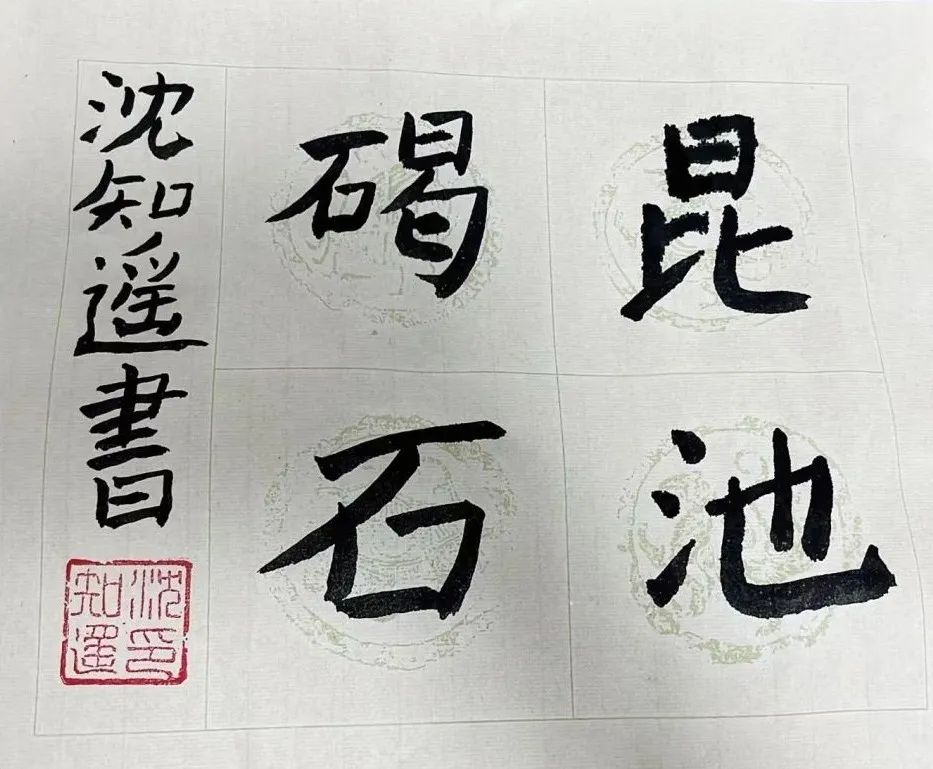 昆池
碣石
沈知遥書
沈印知遥